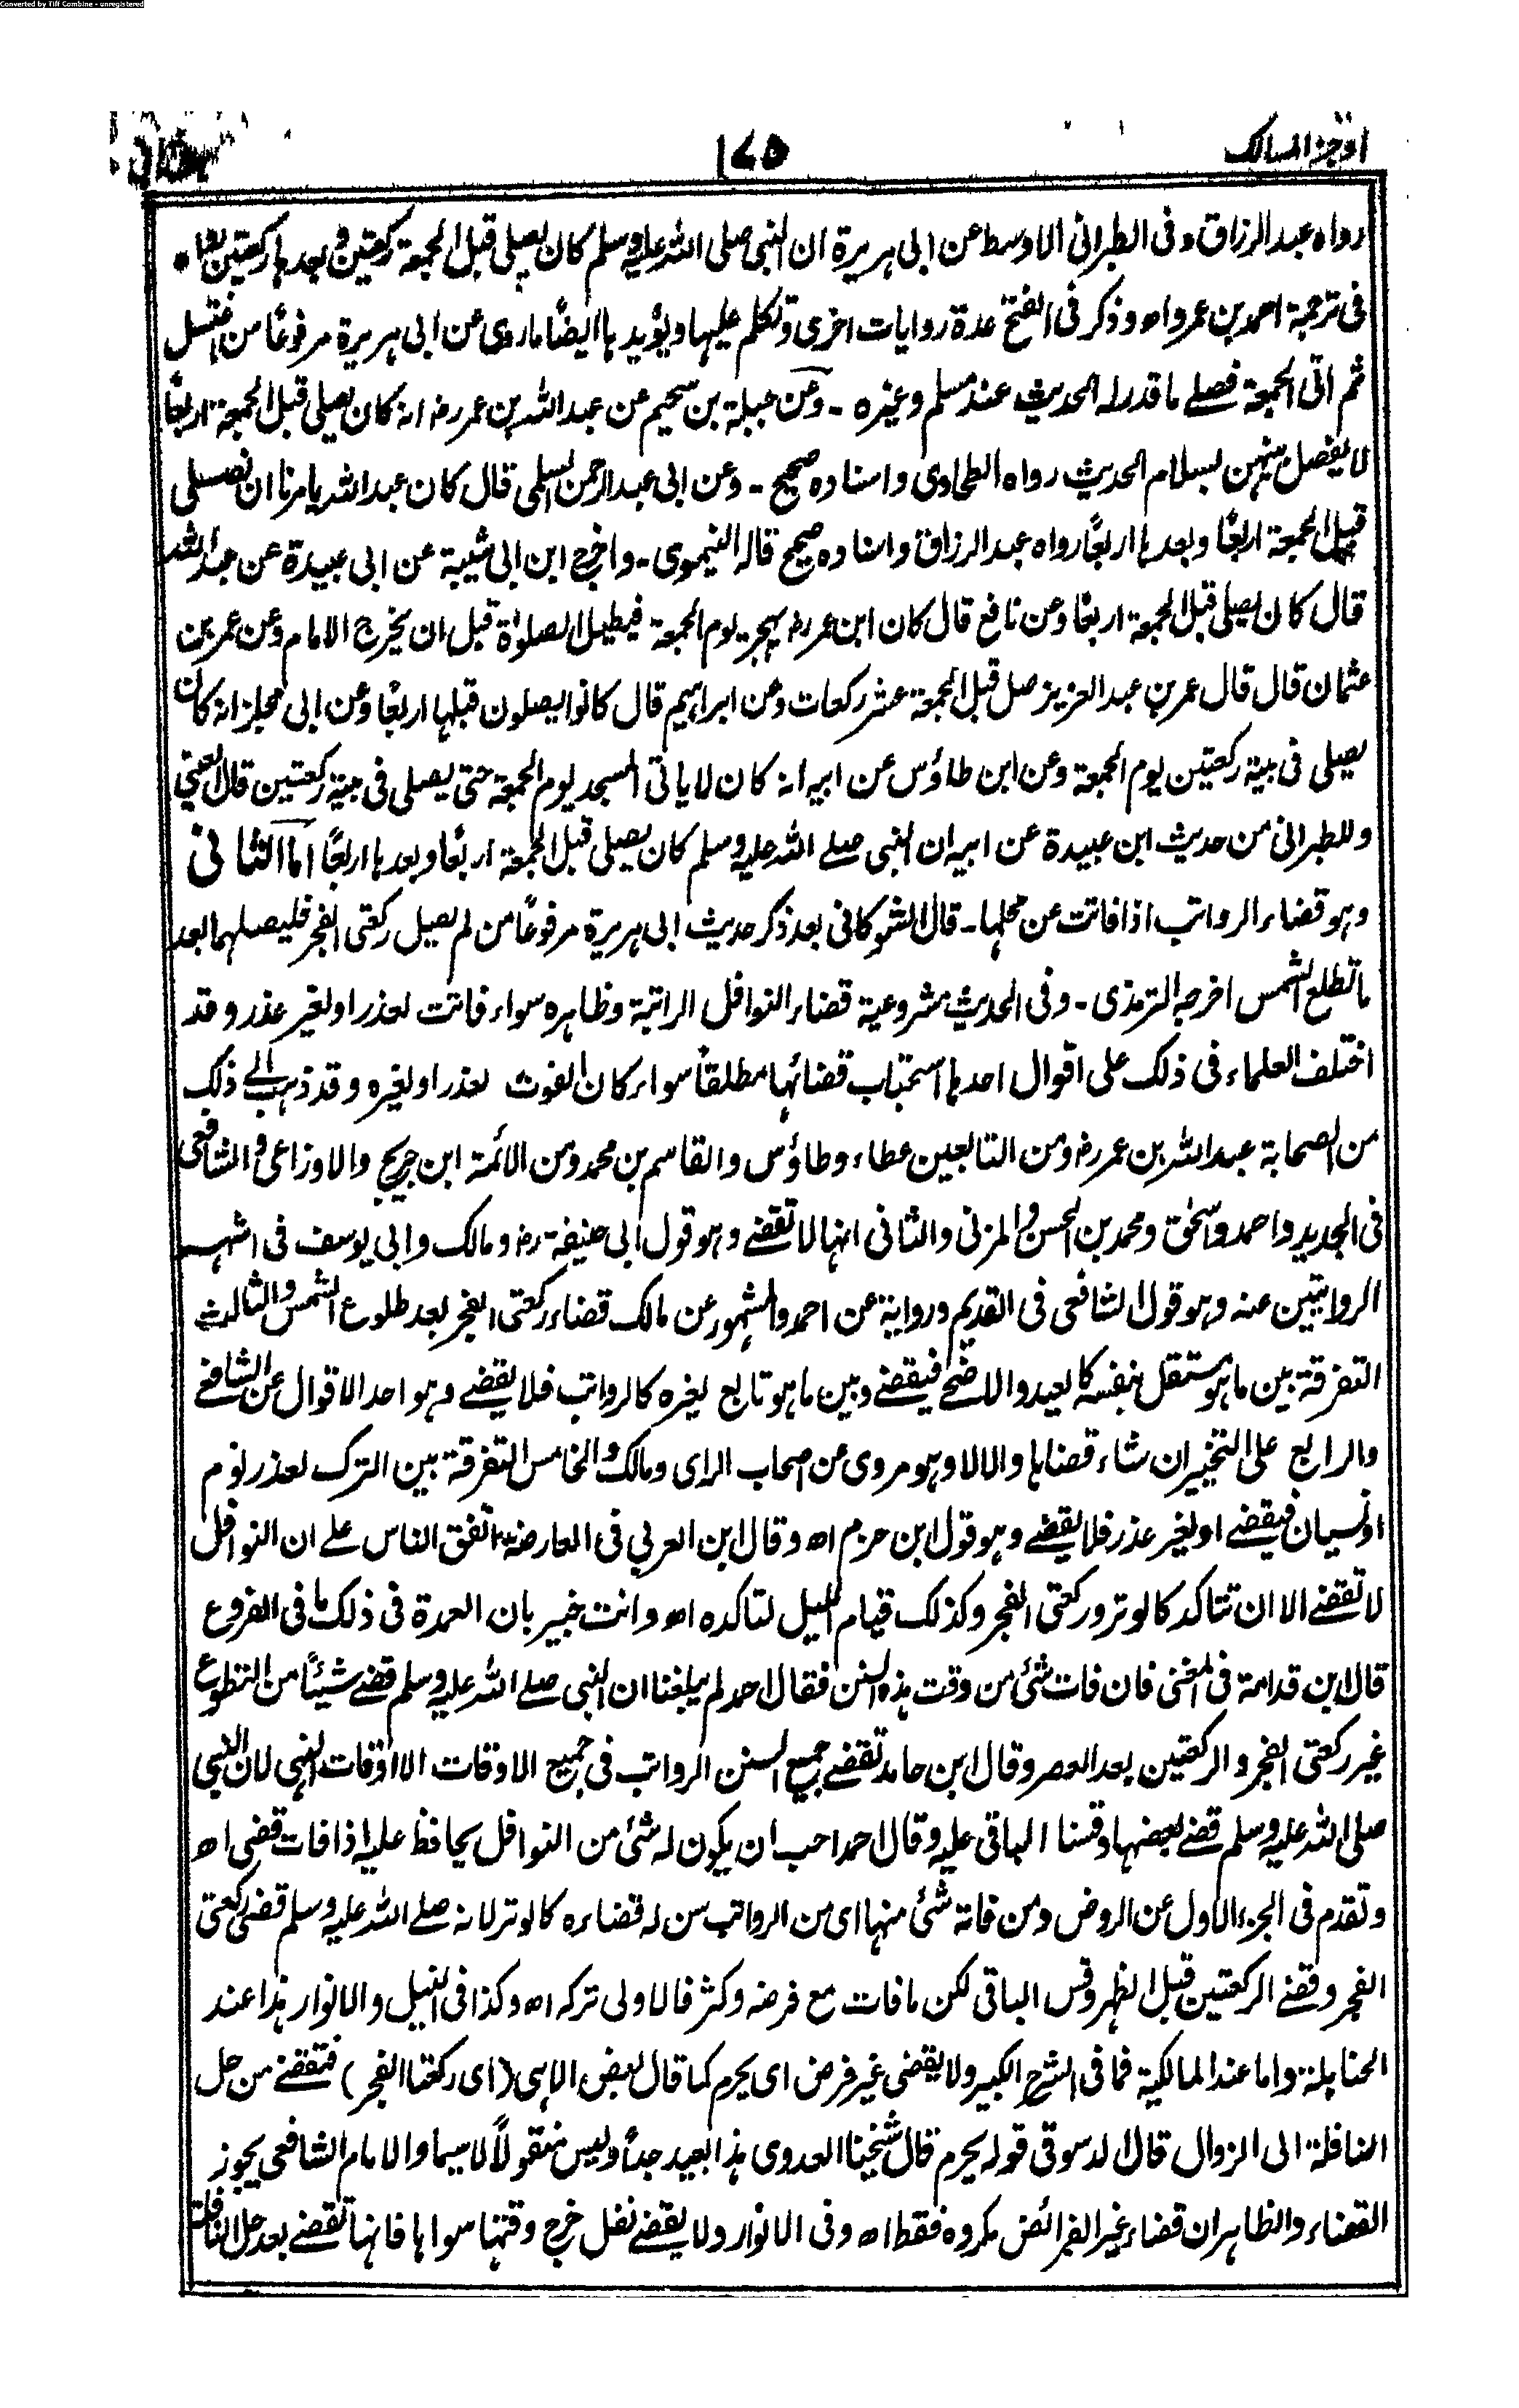 Converted by Tiff Combine - unregistered
اوجز المسالك
١٧٥
رواه عبد الرزاق وفى الطبرانى الاوسط عن ابى هريرة ان النبى صلى الله عليه وسلم كان يصلى قبل الجمعة ركعتين وبعدها ركعتين رواه
فى ترجمة احمد بن عمرو اه وذكر فى الفتح عدة روايات اخرى وتكلم عليها ويؤيدها ايضًا ماروى عن ابى هريرة مرفوعًا من اغتسل
ثم اتى الجمعة فصلے ما قدر له الحديث عند مسلم وغيره - وعن جبلة بن سحيم عن عبد الله بن عمر رض انه كان يصلى قبل الجمعة اربعًا
لا يفصل بينهن بسلام الحديث رواه الطحاوى واسناده صحيح - وعن ابى عبد الرحمن السلمى قال كان عبد الله يامرنا ان نصلى
قبل الجمعة اربعًا وبعدها اربعًا رواه عبد الرزاق واسناده صحيح قاله النيموى - واخرج ابن ابى شيبة عن ابى عبيدة عن عبد الله
قال كان يصلى قبل الجمعة اربعًا وعن نافع قال كان ابن عمر رض يهجر يوم الجمعة فيطيل الصلوٰة قبل ان يخرج الامام وعن عمر بن
عثمان قال قال عمر بن عبد العزيز صل قبل الجمعة عشر ركعات وعن ابراهيم قال كانوا يصلون قبلها اربعًا وعن ابى مجلز انه كان
يصلى فى بيته ركعتين يوم الجمعة وعن ابن طاؤس عن ابيه انه كان لا ياتى المسجد يوم الجمعة حتى يصلى فى بيته ركعتين قال العينى
وللطبرانى من حديث ابن عبيدة عن ابيه ان النبى صلے الله عليه وسلم كان يصلى قبل الجمعة اربعًا وبعدها اربعًا اما الثانى
وهو قضاء الرواتب اذا فاتت عن محلها - قال الشوكانى بعد ذكر حديث ابى هريرة مرفوعًا من لم يصل ركعتى الفجر فليصلهما بعد
ما تطلع الشمس اخرجه الترمذى - وفى الحديث مشروعية قضاء النوافل الراتبة وظاهره سواء فاتت لعذر او لغير عذر وقد
اختلف العلماء فى ذلك على اقوال احدها استحباب قضائها مطلقًا سواء كان الفوت لعذر او لغيره وقد ذهب الے ذلك
من الصحابة عبد الله بن عمر رض ومن التابعين عطاء وطاؤس والقاسم بن محمد ومن الائمة ابن جريج والاوزاعى والشافعى
فى الجديد واحمد واسحق ومحمد بن الحسن والمزنى والثانى انها لا تقضے وهو قول ابى حنيفة رض ومالك وابى يوسف فى اشهر
الروايتين عنه وهو قول الشافعى فى القديم ورواية عن احمد والمشهور عن مالك قضاء ركعتى الفجر بعد طلوع الشمس والثالث
التفرقة بين ما هو مستقل بنفسه كالعيد والاضحے فيقضے وبين ما هو تابع لغيره كالرواتب فلا يقضے وهو احد الاقوال عن الشافعے
والرابع على التخيير ان شاء قضاها والا لا وهو مروى عن اصحاب الراى ومالك والخامس التفرقة بين الترك لعذر نوم
او نسيان فيقضے او لغير عذر فلا يقضے وهو قول ابن حزم اه وقال ابن العربى فى العارضة اتفق الناس علے ان النوافل
لا تقضے الا ان تتاكد كالوتر وركعتى الفجر وكذلك قيام الليل لتاكده اه وانت خبير بان العمدة فى ذلك ما فى الفروع
قال ابن قدامة فى المغنى فان فات شئ من وقت هذه السنن فقال احمد لم يبلغنا ان النبى صلے الله عليه وسلم قضے شيئًا من التطوع
غير ركعتى الفجر والركعتين بعد العصر وقال ابن حامد تقضے جميع السنن الرواتب فى جميع الاوقات الا اوقات النهى لان النبى
صلى الله عليه وسلم قضے بعضها وقسنا الباقى عليه وقال احمد احب ان يكون له شئ من النوافل يحافظ عليه اذا فات قضى اه
وتقدم فى الجزء الاول عن الروض ومن فاته شئ منها اى من الرواتب سن له قضاءه كالوتر لانه صلے الله عليه وسلم قضى ركعتى
الفجر وقضے الركعتين قبل الظهر وقس الباقى لكن ما فات مع فرضه وكثر فالاولى تركه اه وكذا فى النيل والانوار هذا عند
الحنابلة واما عند المالكية فما فى الشرح الكبير ولا يقضى غير فرض اى يحرم كما قال بعض الا هى (اى ركعتا الفجر) فتقضے من حل
النافلة الى الزوال قال الدسوقى قوله يحرم قال شيخنا العدوى هذا بعيد جدًا وليس منقولًا لا سيما والامام الشافعى يجوز
القضاء والظاهر ان قضاء غير الفرائض مكروه فقط اه وفى الانوار ولا يقضے نفل خرج وقتها سواها فانها تقضے بعد حل النافلة